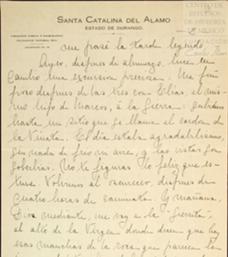 SANTA CATALINA DEL ALAMO
ESTADO DE DURANGO.
me pasé la tarde leyendo
Ayer, despues de almuerzo, hice en
cambio una excursion preciosa. Me fui
á poco despues de las tres con Elias, el mis-
mo hijo de Marcos, á la Sierra. Subimos
hasta un sitio que se llama el cordon de
la Vinata. El dia estaba agradabilisimo,
sin nada de frio ni aire, y las vistas son
soberbias. No te figuras lo feliz que es-
tuve. Volvimos al oscurecer, despues de
cuatro horas de caminata. Y mañana,
Dios mediante, me voy a la
el alto de la Virgen donde dicen que hay
esas manchas de la rosa que parecen